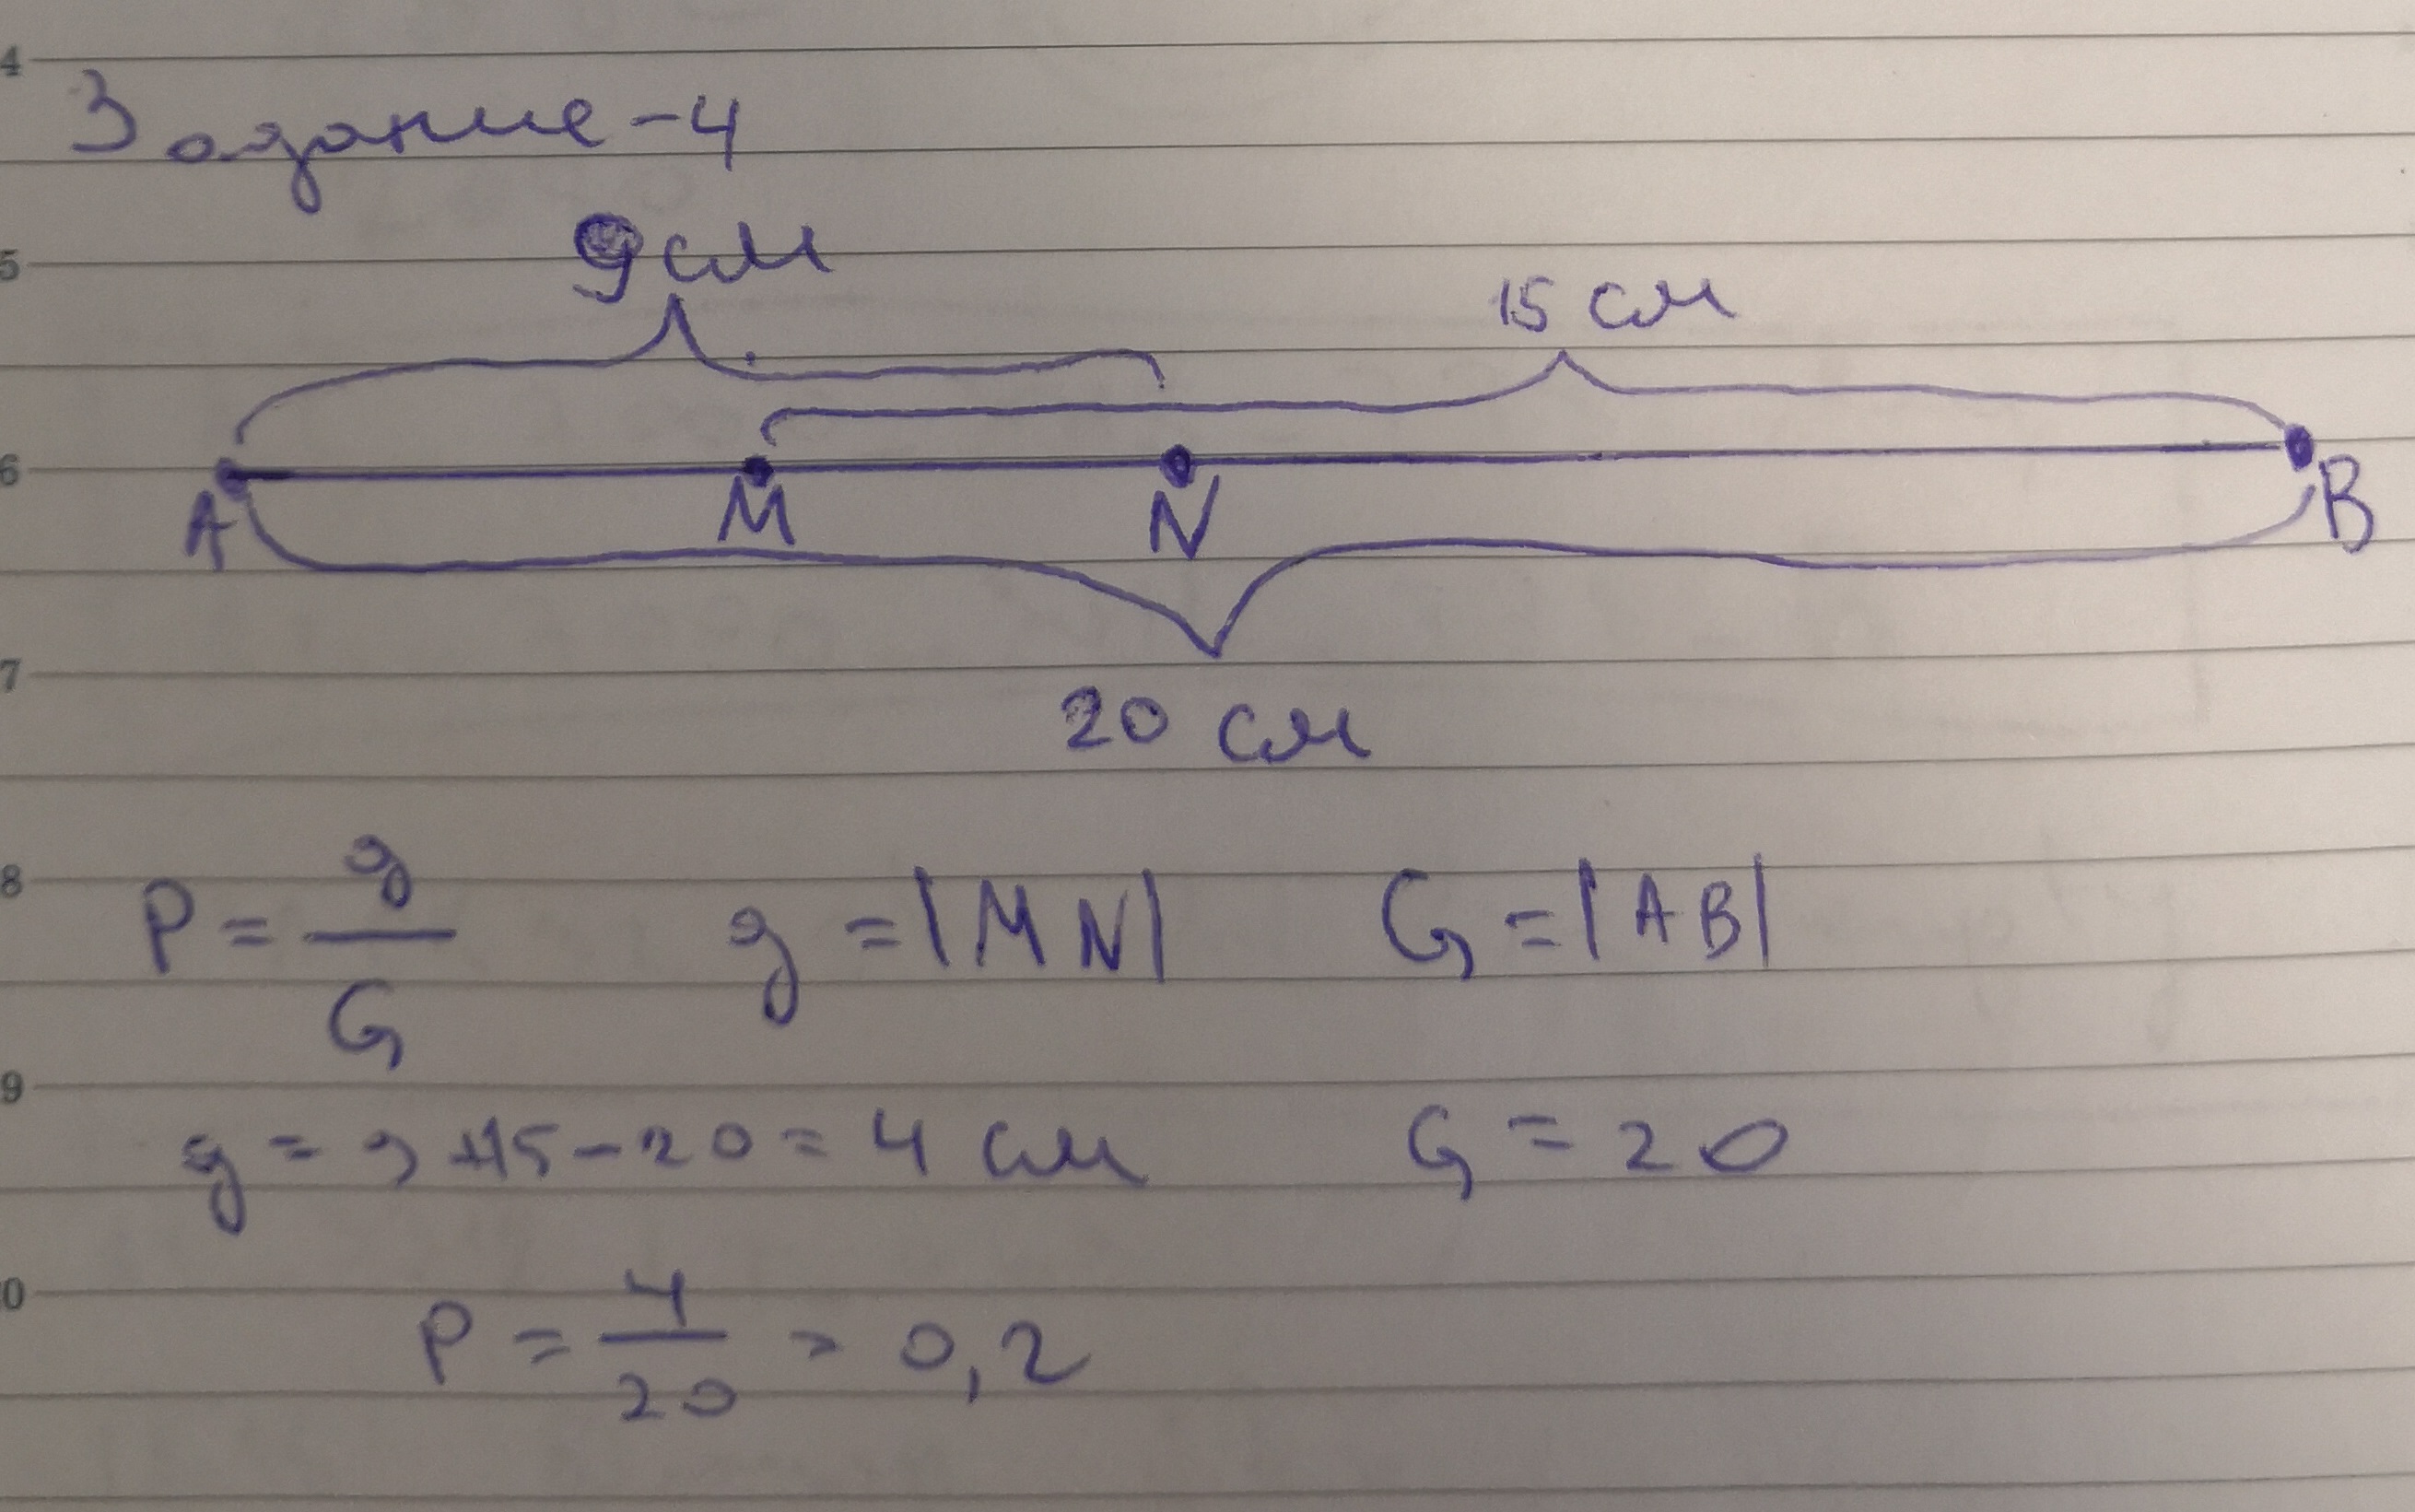 4
Задание-4
9 см
5
15 см
6
A M N B
7
20 см
8
P = g/G g = |MN| G = |AB|
9
g = 9+15-20 = 4 см G = 20
0
P = 4/20 = 0,2